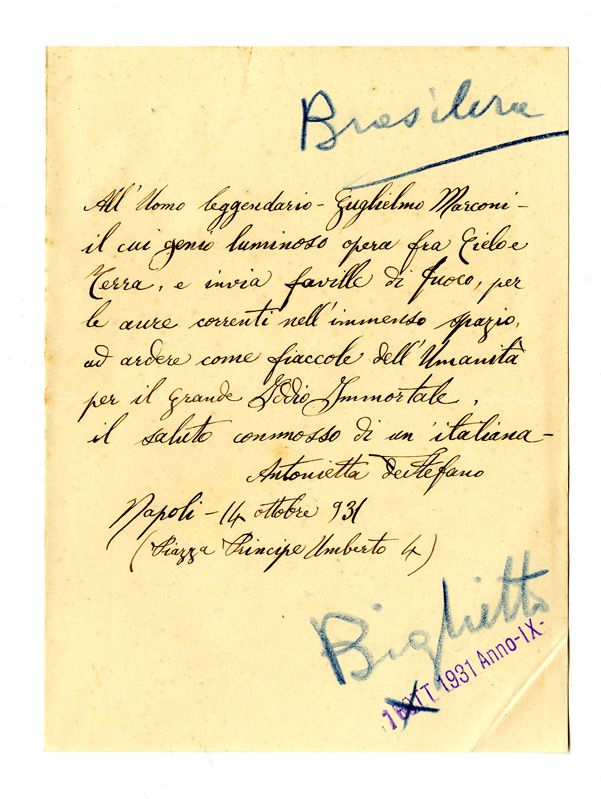 Brasilera
All'Uomo leggendario - Guglielmo Marconi -
il cui genio luminoso opera fra Cielo e
Terra, e invia faville di fuoco, per
le aure correnti nell'immenso spazio,
ad ardere come fiaccole dell'Umanità
per il grande Iddio Immortale,
il saluto commosso di un'italiana -
Antonietta de Stefano
Napoli - 14 ottobre 931
(Piazza Principe Umberto 4)
Biglietto
OTT. 1931 Anno-IX-